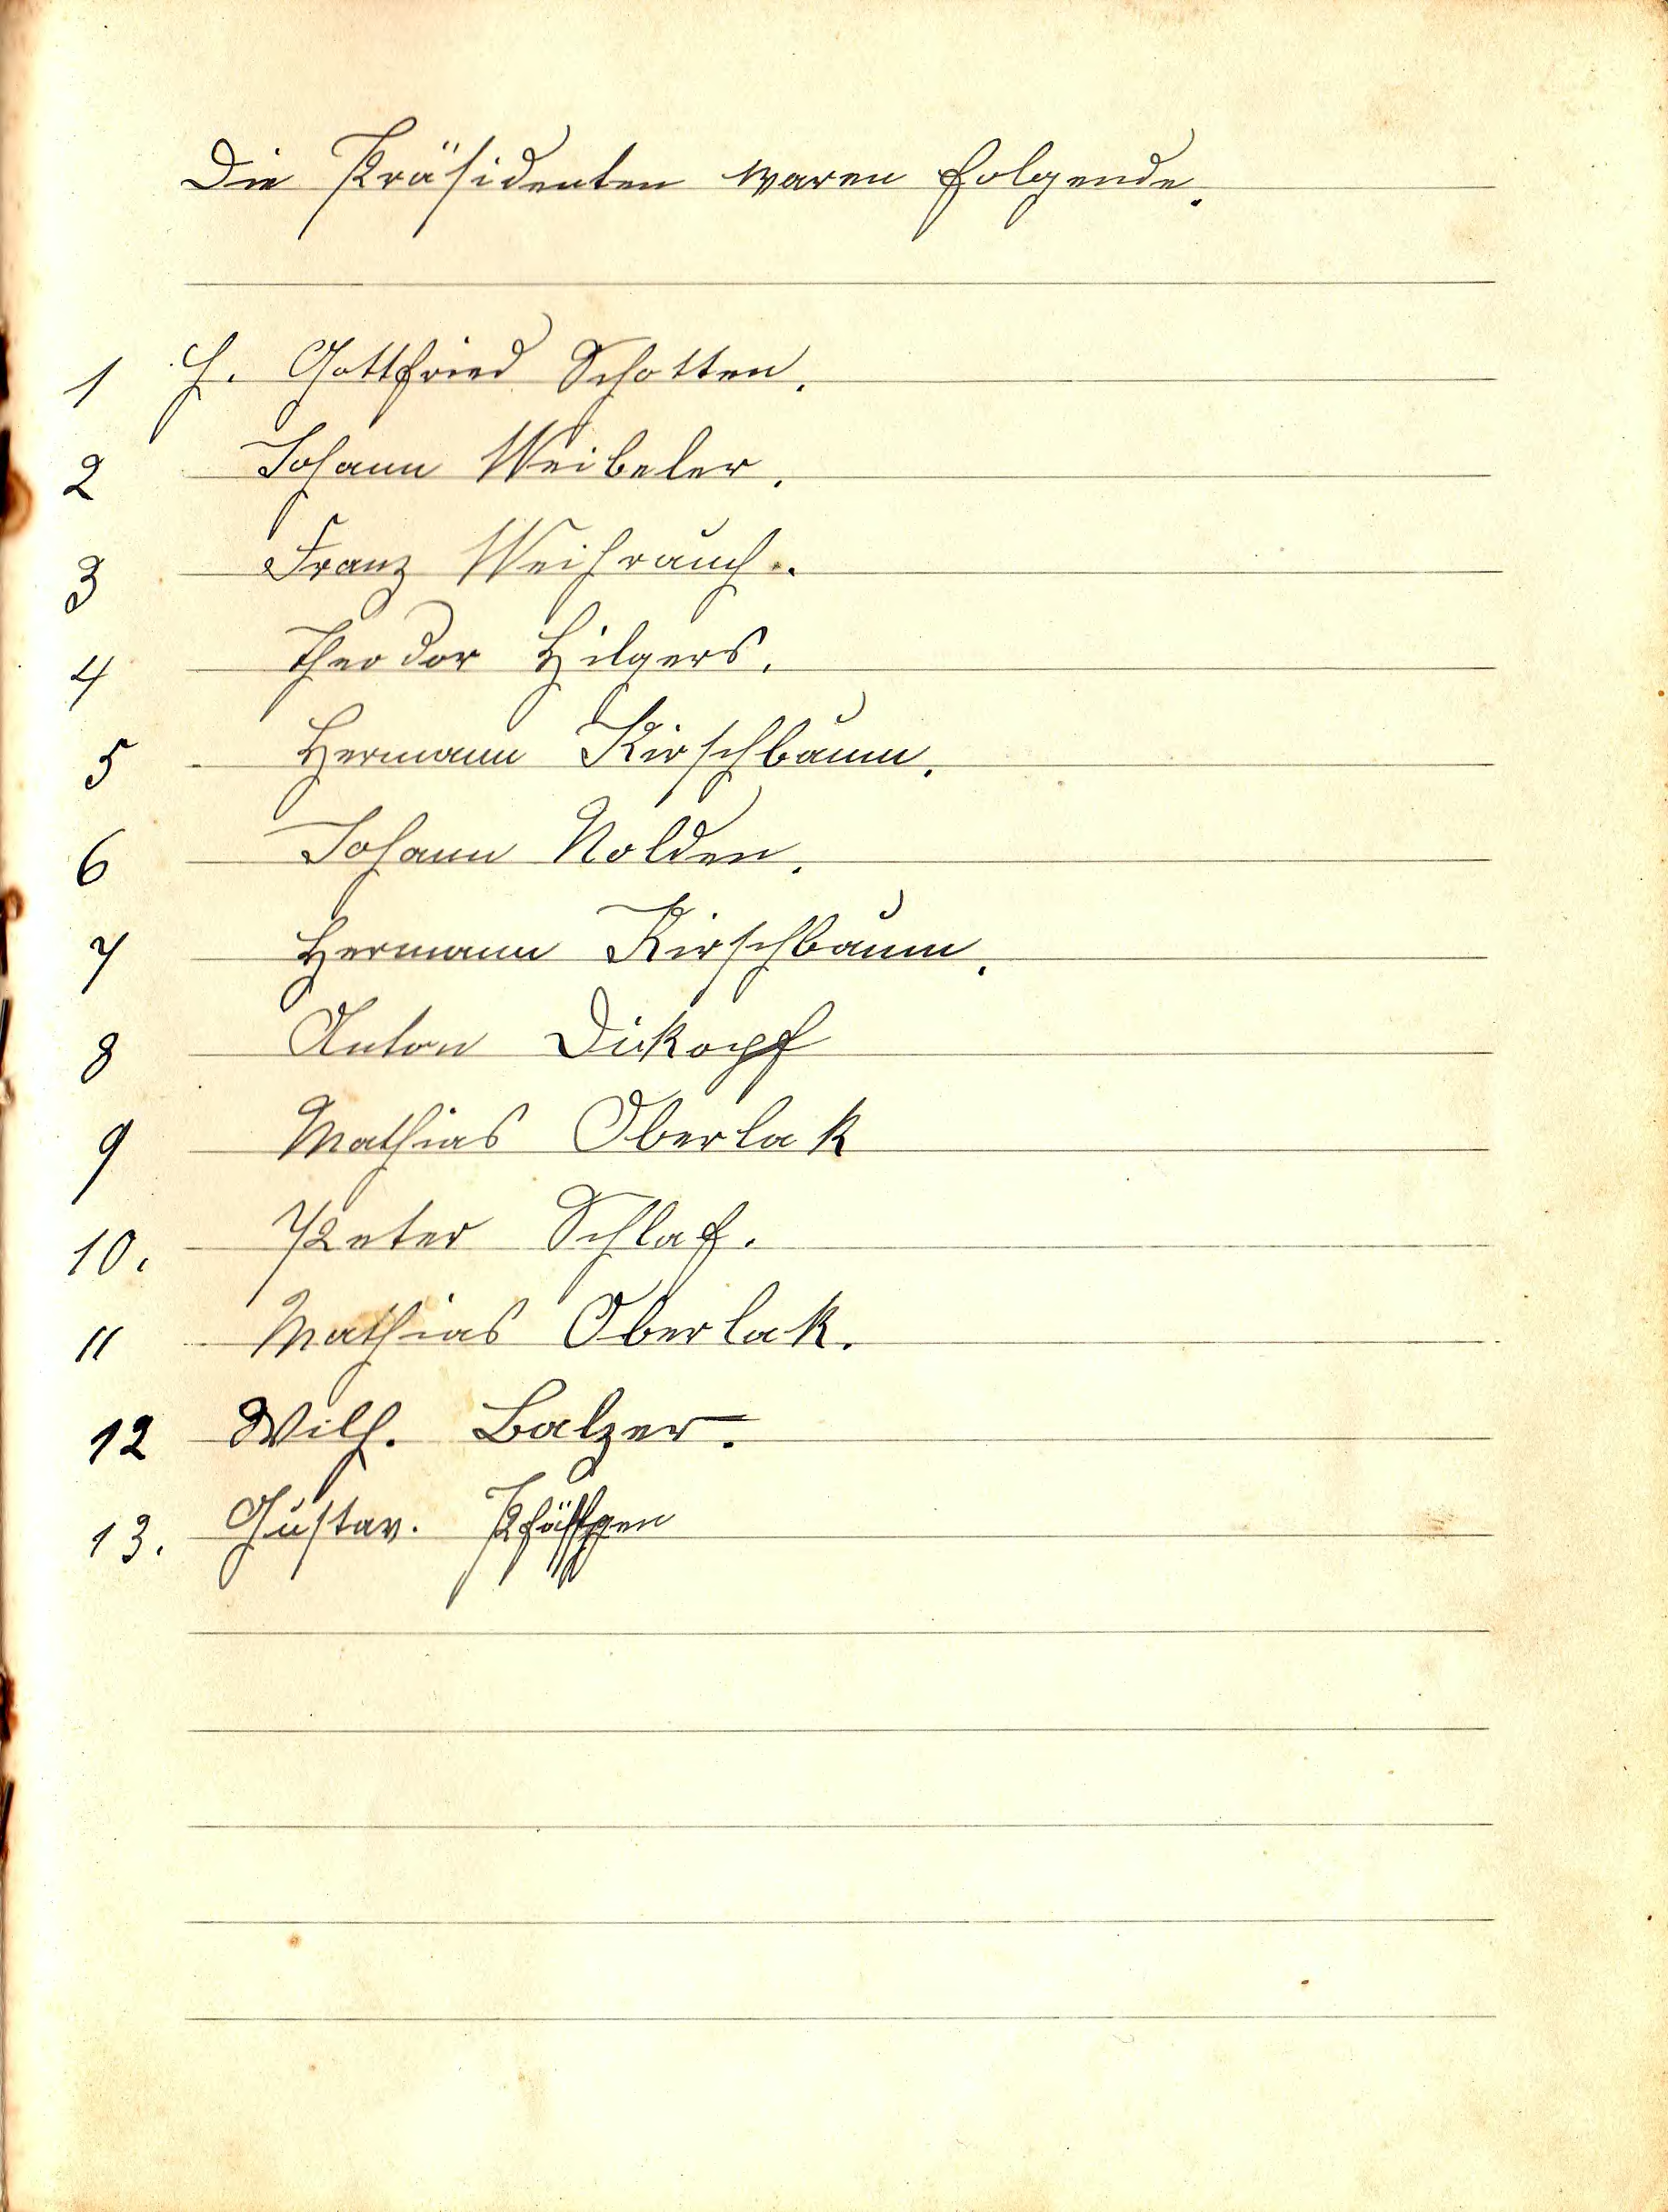 Die Präsidenten waren folgende.
1 H. Gottfried Schotten.
2 Johann Weibeler.
3 Franz Weihrauch.
4 Theodor Hilgers.
5 Hermann Kirschbaum.
6 Johann Nolden.
7 Hermann Kirschbaum.
8 Anton Dickopf
9 Mathias Oberlak
10. Peter Schlaf.
11 Mathias Oberlak.
12 Wilh. Balzer.
13. Gustav. Pfäffgen